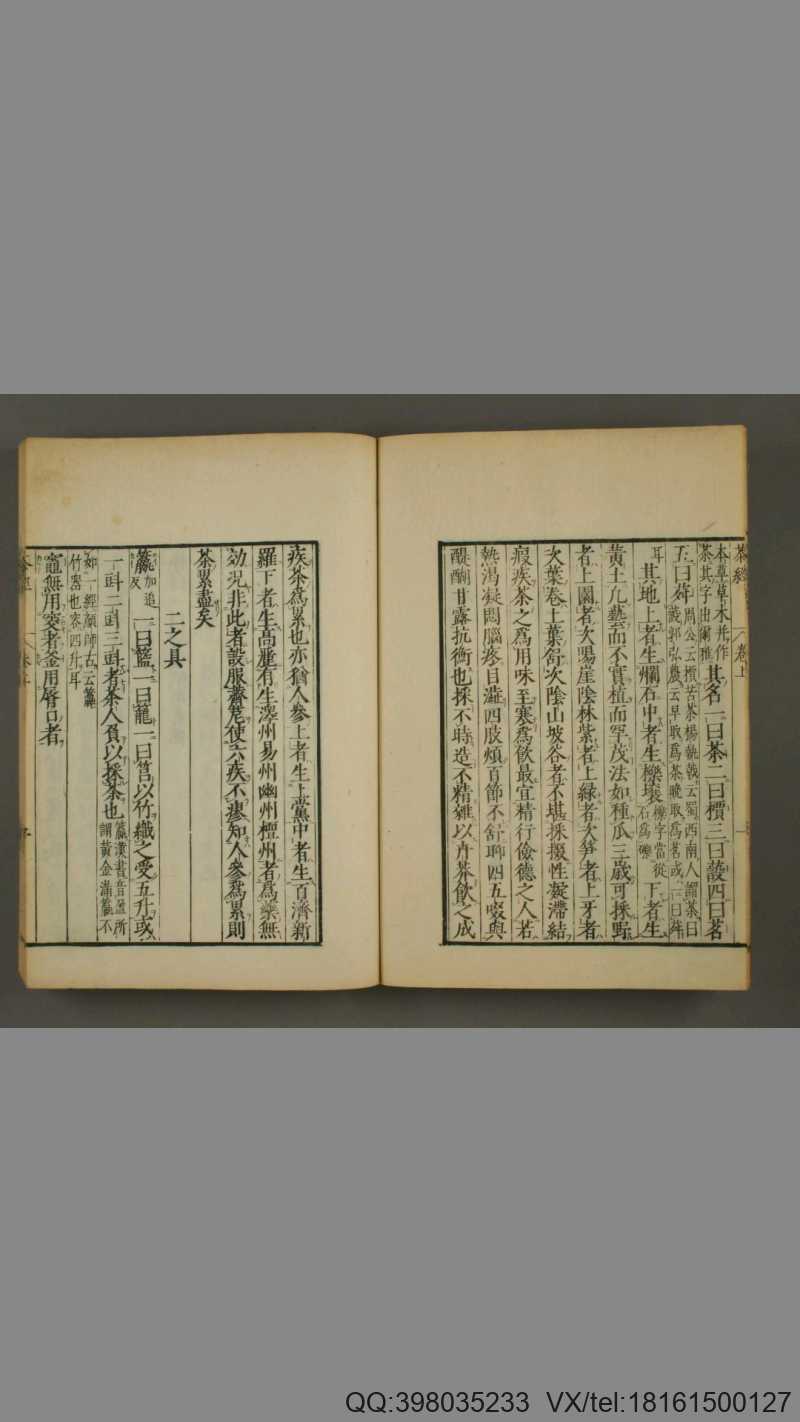 茶經 卷上
本草草木并作茶其字出爾雅 其名一曰茶二曰檟三曰蔎四曰茗
五曰荈 周公云檟苦茶楊執戟云蜀西南人謂茶曰蔎郭弘農云早取為茶晚取為茗或一曰荈
耳 其地上者生爛石中者生櫟壤 櫟字當從石為礫 下者生
黃土凡藝而不實植而罕茂法如種瓜三歲可採野
者上園者次陽崖陰林紫者上綠者次笋者上牙者
次葉卷上葉舒次陰山坡谷者不堪採掇性凝滯結
瘕疾茶之為用味至寒為飲最宜精行儉德之人若
熱渴凝悶腦疼目澁四肢煩百節不舒聊四五啜與
醍醐甘露抗衡也採不時造不精雜以卉莽飲之成
疾茶為累也亦猶人參上者生上黨中者生百濟新
羅下者生高麗有生澤州易州幽州檀州者為藥無
効況非此者設服薺苨使六疾不瘳知人參為累則
茶累盡矣
二之具
籝 加追反 一曰籃一曰籠一曰筥以竹織之受五升或
一㪷二㪷三㪷者茶人負以採茶也 籝漢書音盈所謂黃金滿籝不
如一經顏師古云籝竹器也容四升耳
竈無用突者釜用脣口者